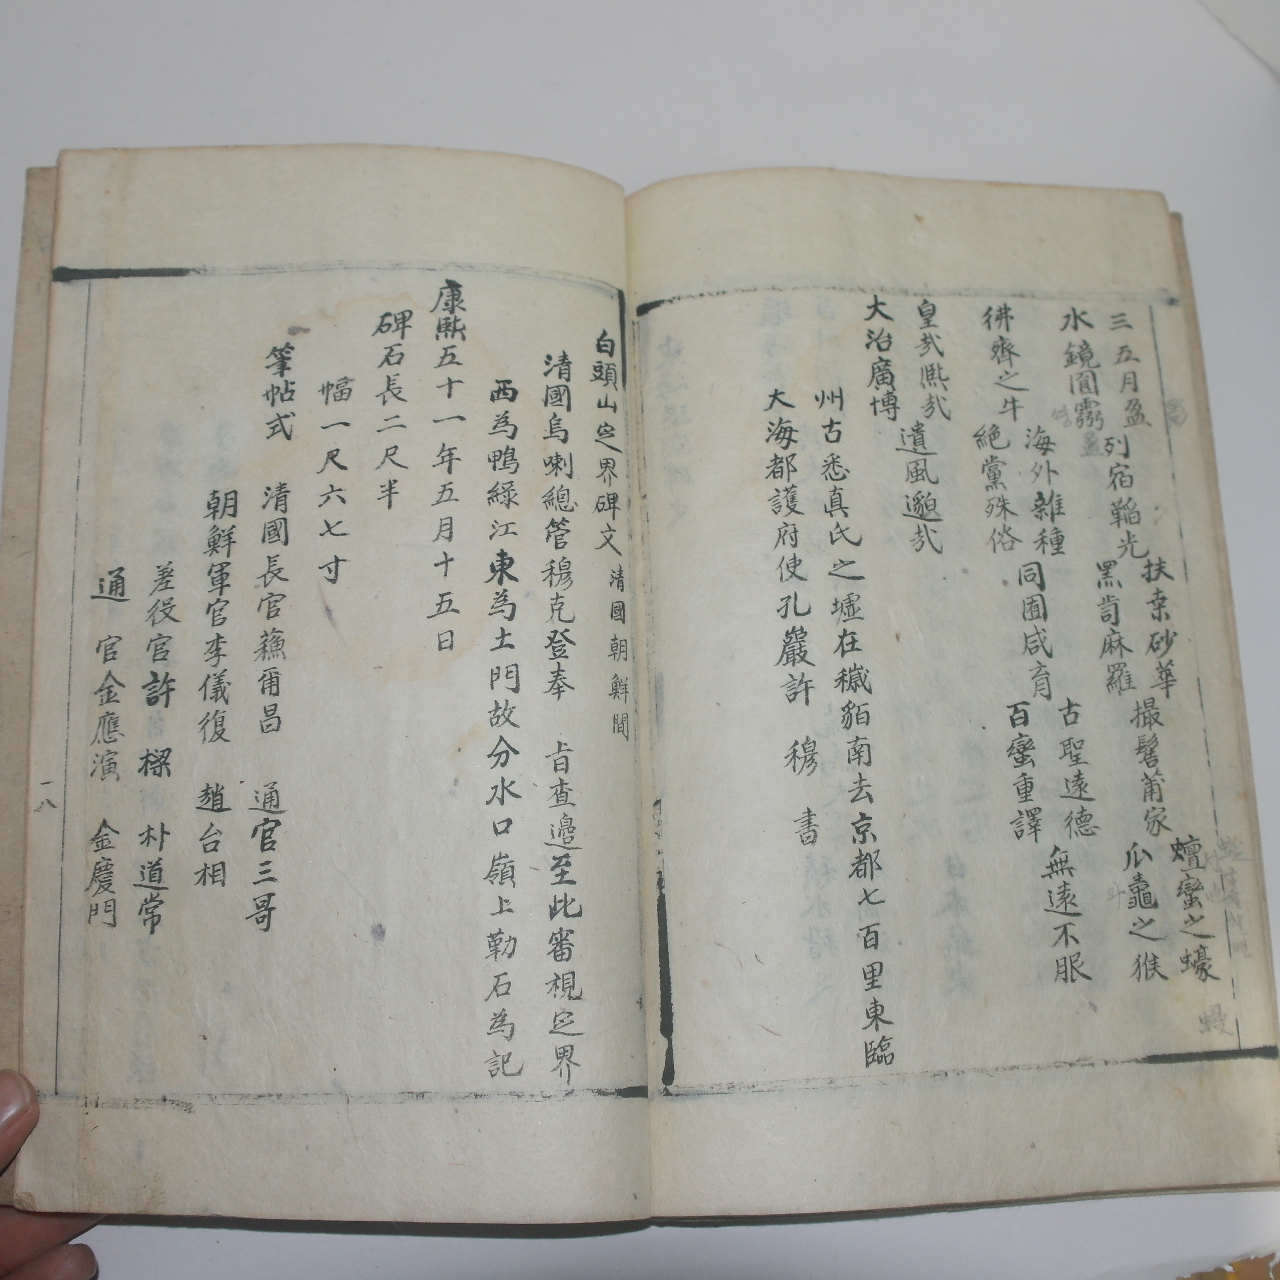 三五月盈 列宿韜光 扶桒砂華 撮髻莆家 蠻之蠔
水鏡圓 黑齒麻羅 瓜之猴
海外雜種 古聖遠德 無遠不服
彿齊之牛 絕黨殊俗 同囿咸育 百蠻重譯
皇㢤熈㢤 遺風邈㢤
大治廣博
州古悉真氏之墟在穢貊南去京都七百里東臨
大海都護府使孔巖許 穆 書
白頭山㝎界碑文 清國朝鮮間
清國烏喇總管穆克登奉 旨查邊至此審視㝎界
西為鴨綠江東為土門故分水口嶺上勒石為記
康熈五十一年五月十五日
碑石長二尺半
幅一尺六七寸
筆帖式 清國長官蘓甭昌 通官三哥
朝鮮軍官李儀復 趙台相
差役官許樑 朴道常
通 官金應演 金慶門
一八